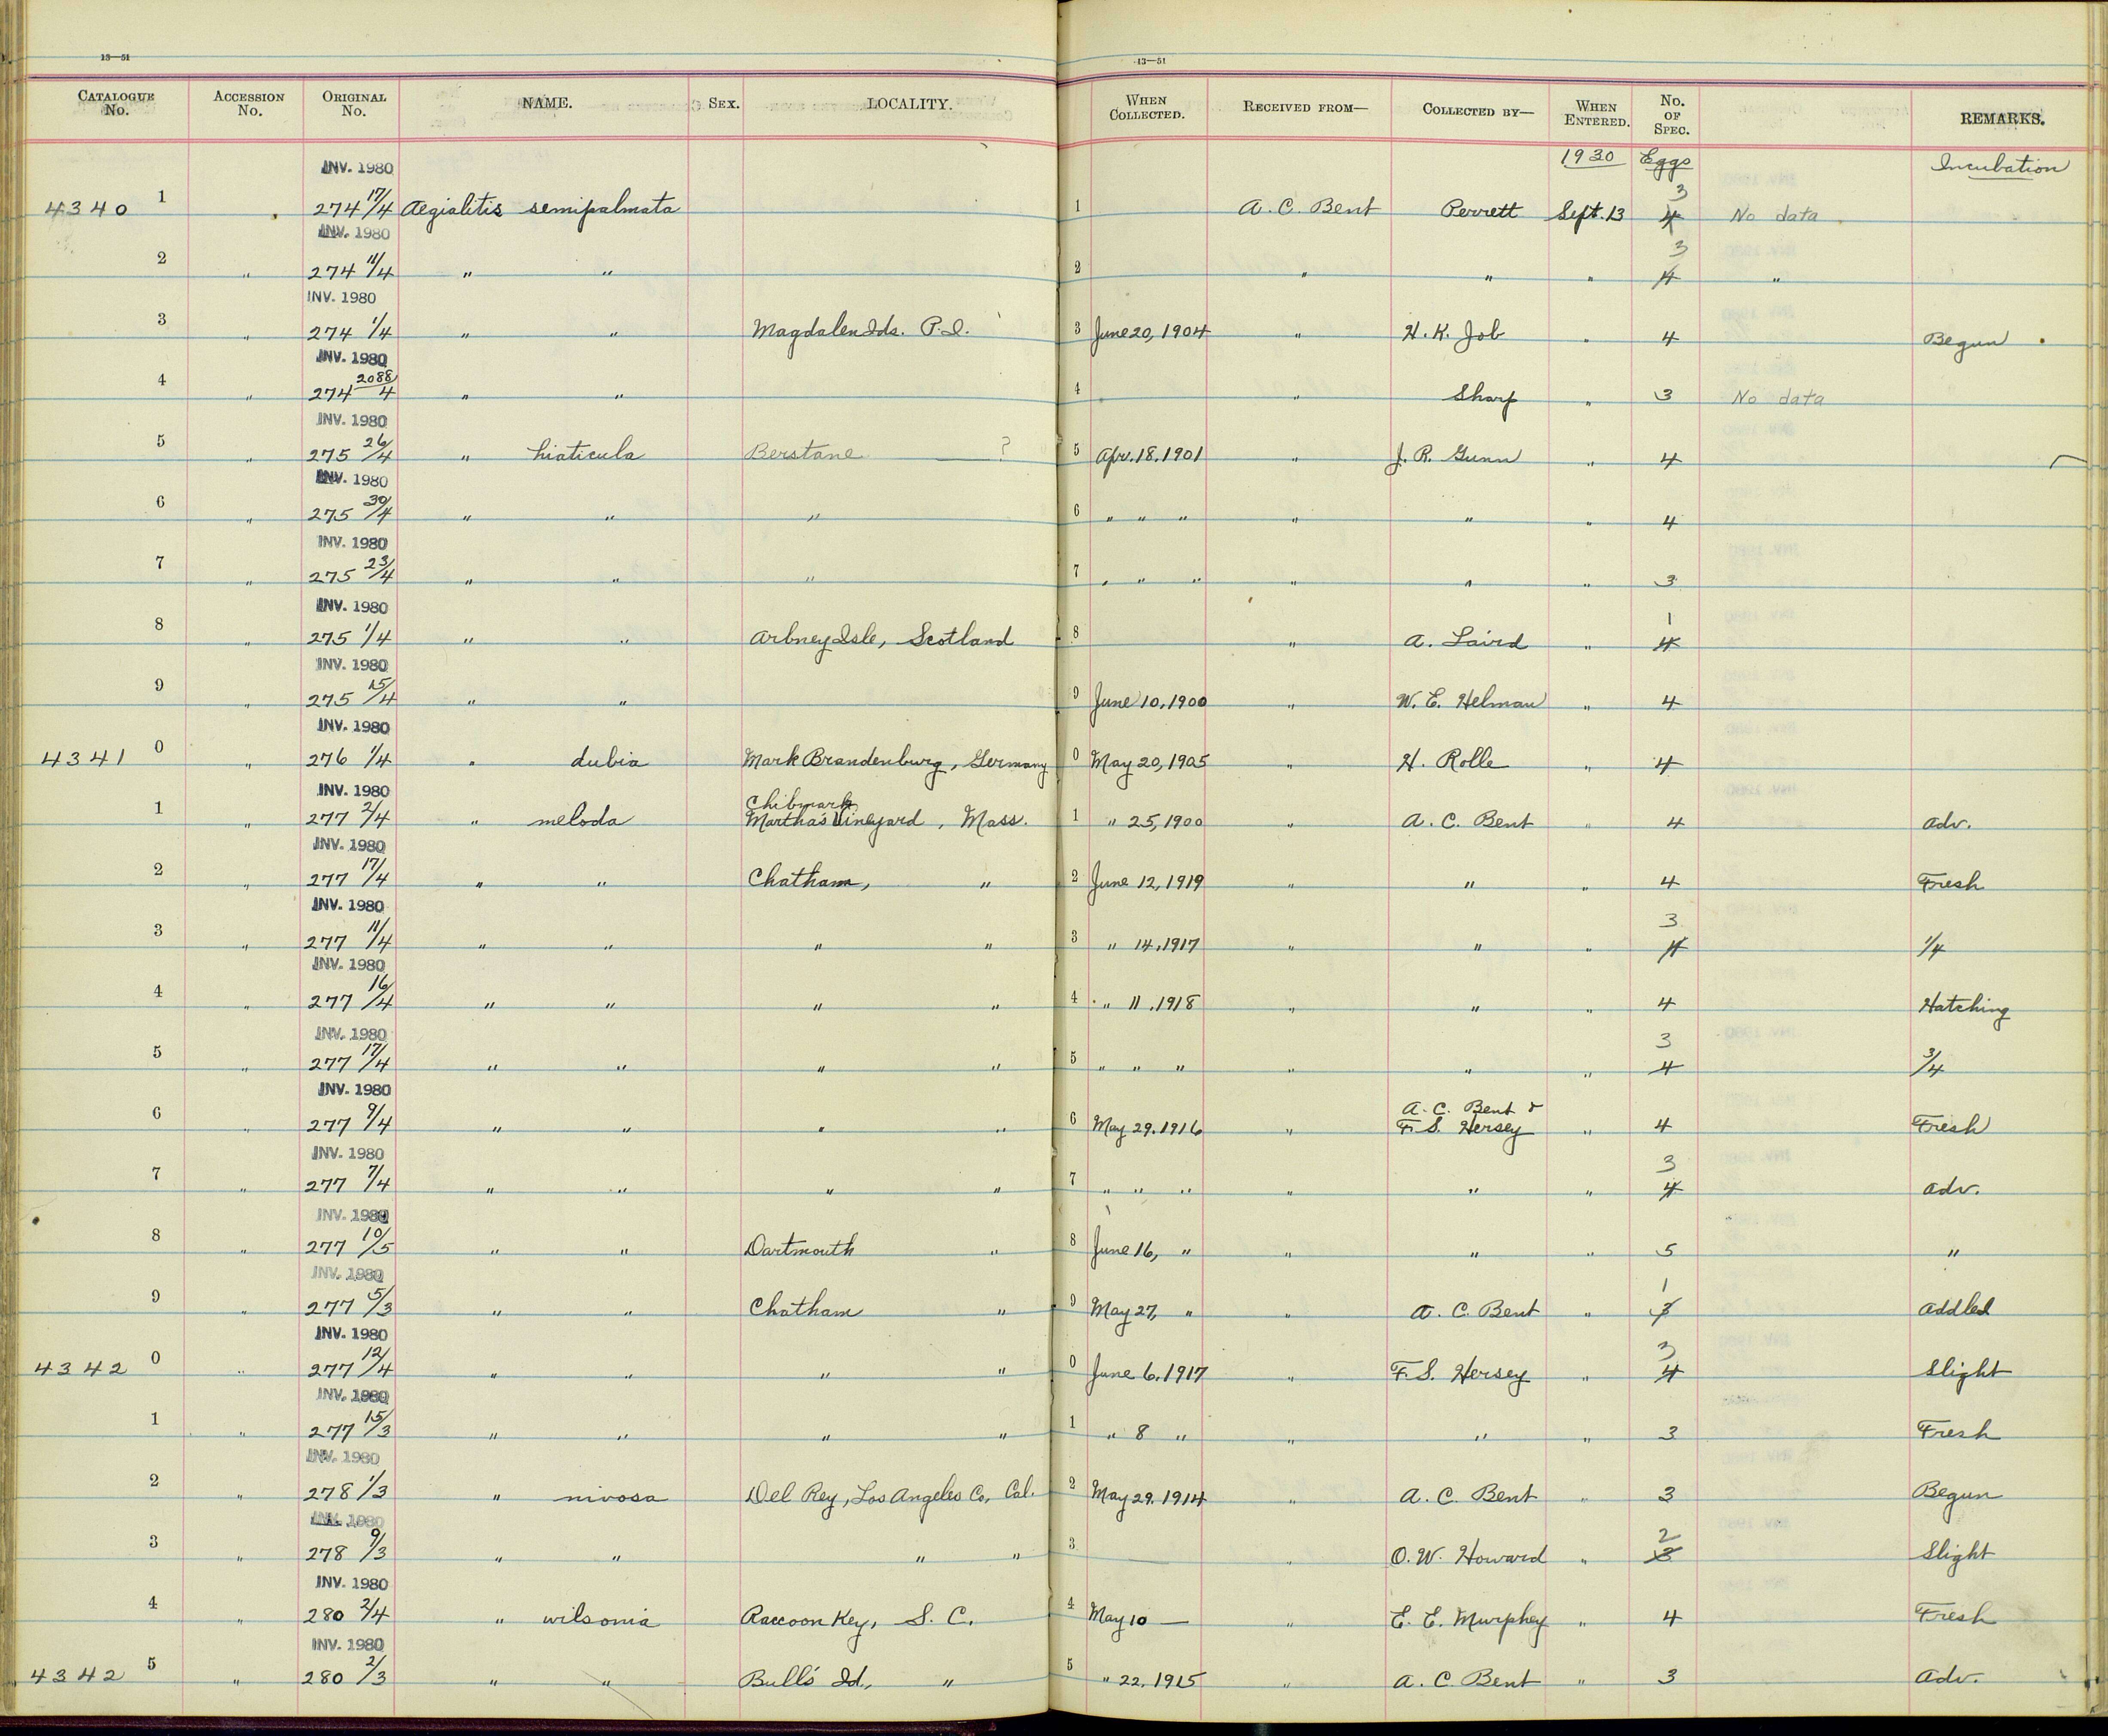 13—51
13—51
CATALOGUE No. ACCESSION No. ORIGINAL No. NAME. SEX. LOCALITY. WHEN COLLECTED. RECEIVED FROM— COLLECTED BY— WHEN ENTERED. No. OF SPEC. REMARKS.
INV. 1980 1930 Eggs Incubation
4340 1 274 17/4 Aegialitis semipalmata 1 A. C. Bent Perrett Sept. 13 4 3 No data
INV. 1980
2 " 274 11/4 " " 2 " " " 4 3 "
INV. 1980
3 " 274 1/4 " " Magdalen Ids. P.I. 3 June 20, 1904 " H. K. Job " 4 Begun
INV. 1980
4 " 274 2088/4 " " 4 " Sharp " 3 No data
INV. 1980
5 " 275 26/4 " hiaticula Berstane ? 5 Apr. 18. 1901 " J. R. Gunn " 4
INV. 1980
6 " 275 30/4 " " " 6 " " " " " " 4
INV. 1980
7 " 275 23/4 " " " 7 " " " " " " 3
INV. 1980
8 " 275 1/4 " " Arbney Isle, Scotland 8 " A. Laird " 4 1
INV. 1980
9 " 275 15/4 " " 9 June 10, 1900 " W. E. Helman " 4
INV. 1980
4341 0 " 276 1/4 " dubia Mark Brandenburg, Germany 0 May 20, 1905 " H. Rolle " 4
INV. 1980 Chibmark
1 " 277 2/4 " meloda Martha's Vineyard, Mass. 1 " 25, 1900 " A. C. Bent " 4 Adv.
INV. 1980
2 " 277 17/4 " " Chatham, " 2 June 12, 1919 " " " 4 Fresh
INV. 1980
3 " 277 11/4 " " " " 3 " 14, 1917 " " " 4 3 1/4
INV. 1980
4 " 277 16/4 " " " " 4 " 11, 1918 " " " 4 Hatching
INV. 1980
5 " 277 17/4 " " " " 5 " " " " " " 4 3 3/4
INV. 1980 A. C. Bent &
6 " 277 9/4 " " " " 6 May 29. 1916 " F. S. Hersey " 4 Fresh
INV. 1980
7 " 277 7/4 " " " " 7 " " " " " " 4 3 Adv.
INV. 1980
8 " 277 10/5 " " Dartmouth " 8 June 16, " " " " 5 "
INV. 1980
9 " 277 5/3 " " Chatham " 9 May 27, " " A. C. Bent " 3 1 Addled
INV. 1980
4342 0 " 277 12/4 " " " " 0 June 6, 1917 " F. S. Hersey " 4 3 Slight
INV. 1980
1 " 277 15/3 " " " " 1 " 8 " " " " 3 Fresh
INV. 1980
2 " 278 1/3 " nivosa Del Rey, Los Angeles Co, Cal. 2 May 29. 1914 " A. C. Bent " 3 Begun
INV. 1980
3 " 278 9/3 " " " " 3 — " O. W. Howard " 3 2 Slight
INV. 1980
4 " 280 2/4 " wilsonia Raccoon Key, S. C. 4 May 10 — " E. E. Murphey " 4 Fresh
INV. 1980
4342 5 " 280 2/3 " " Bull's Id., " 5 " 22, 1915 " A. C. Bent " 3 Adv.